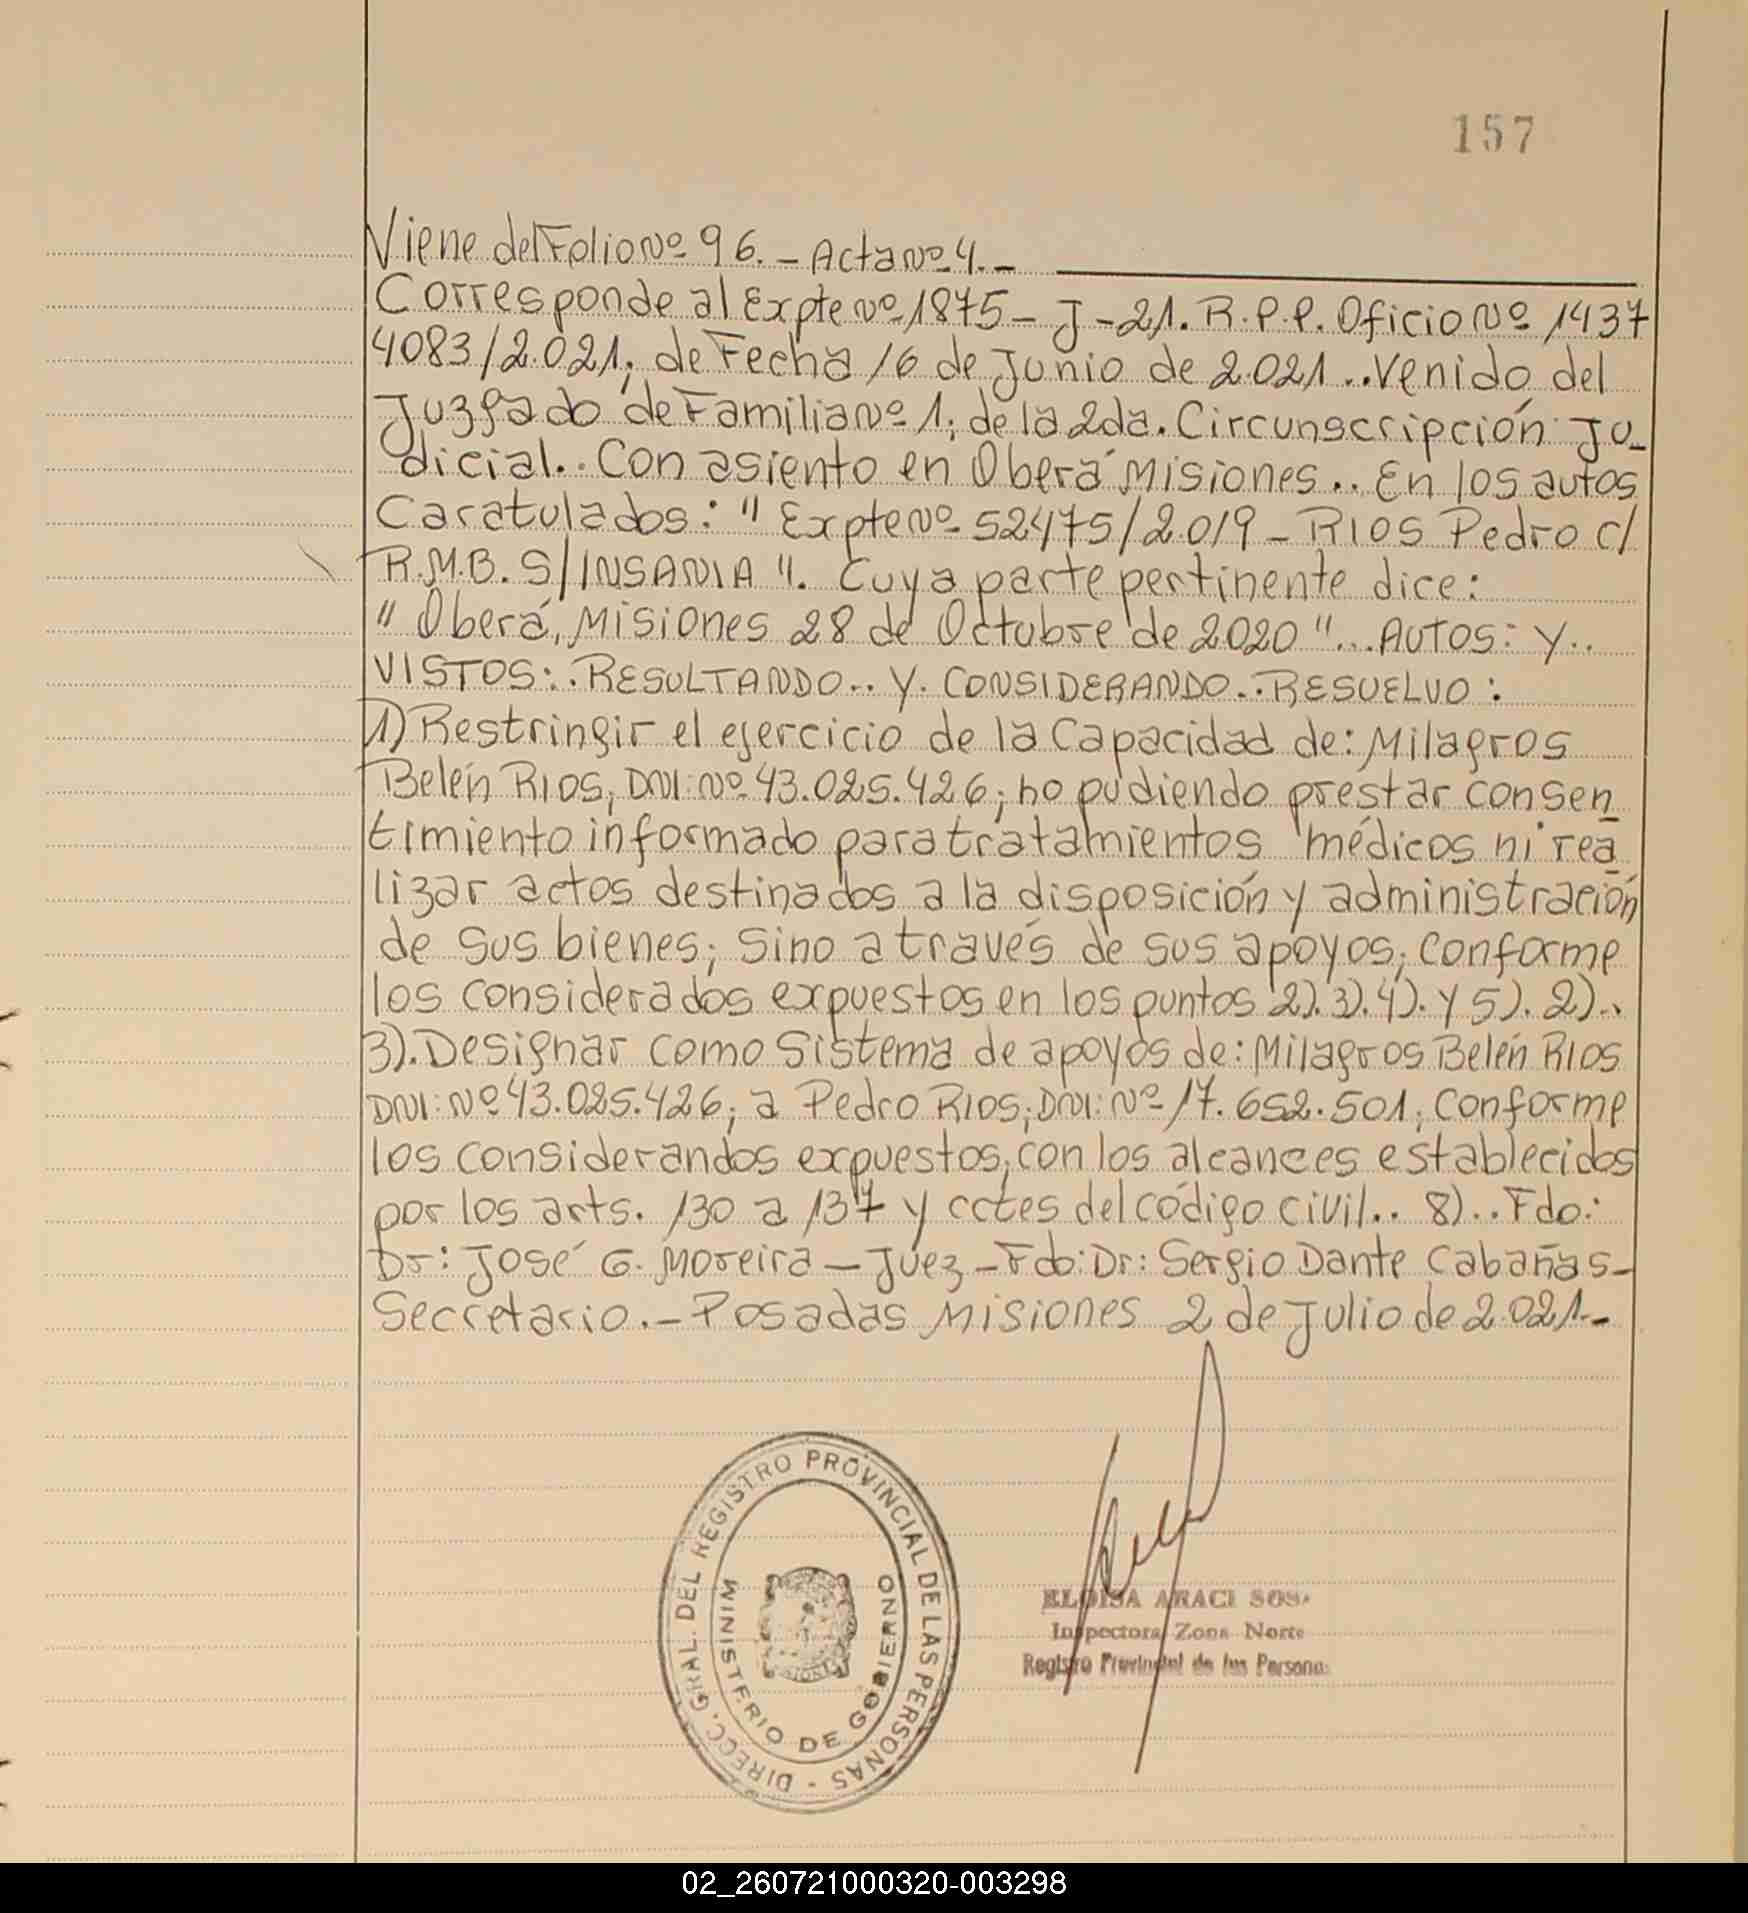 157
Viene del Folio Nº 96. - Acta Nº 4. -
Corresponde al Expte Nº 1875 - J - 21. R.P.P. Oficio Nº 1437
4083/2.021; de Fecha 16 de Junio de 2.021.. Venido del
Juzgado de Familia Nº 1; de la 2da. Circunscripción Ju-
dicial.. Con asiento en Oberá Misiones.. En los autos
Caratulados: " Expte Nº 52475/2.019 - RIOS Pedro c/
R.M.B. S/INSANIA ". Cuya parte pertinente dice:
" Oberá, Misiones 28 de Octubre de 2020 "... AUTOS: Y..
VISTOS:. RESULTANDO.. Y. CONSIDERANDO.. RESUELVO:
1) Restringir el ejercicio de la Capacidad de: Milagros
Belén RIOS, DNI: Nº 43.025.426; no pudiendo prestar consen
timiento informado para tratamientos médicos ni rea
lizar actos destinados a la disposición y administración
de sus bienes; Sino a través de sus apoyos; conforme
los considerados expuestos en los puntos 2). 3). 4). Y 5). 2)..
3). Designar como Sistema de apoyos de: Milagros Belén RIOS
DNI: Nº 43.025.426; a Pedro RIOS; DNI: Nº 17.652.501; conforme
los considerandos expuestos, con los alcances establecidos
por los arts. 130 a 137 y cctes del código civil.. 8).. Fdo:
Dr: José G. Moreira - Juez - Fdo: Dr: Sergio Dante Cabañas -
Secretario. - Posadas Misiones 2 de Julio de 2.021. -
DIRECC. GRAL. DEL REGISTRO PROVINCIAL DE LAS PERSONAS -
MINISTERIO DE GOBIERNO
ELOISA ARACI SOSA
Inspectora Zona Norte
Registro Provincial de las Personas
02_260721000320-003298